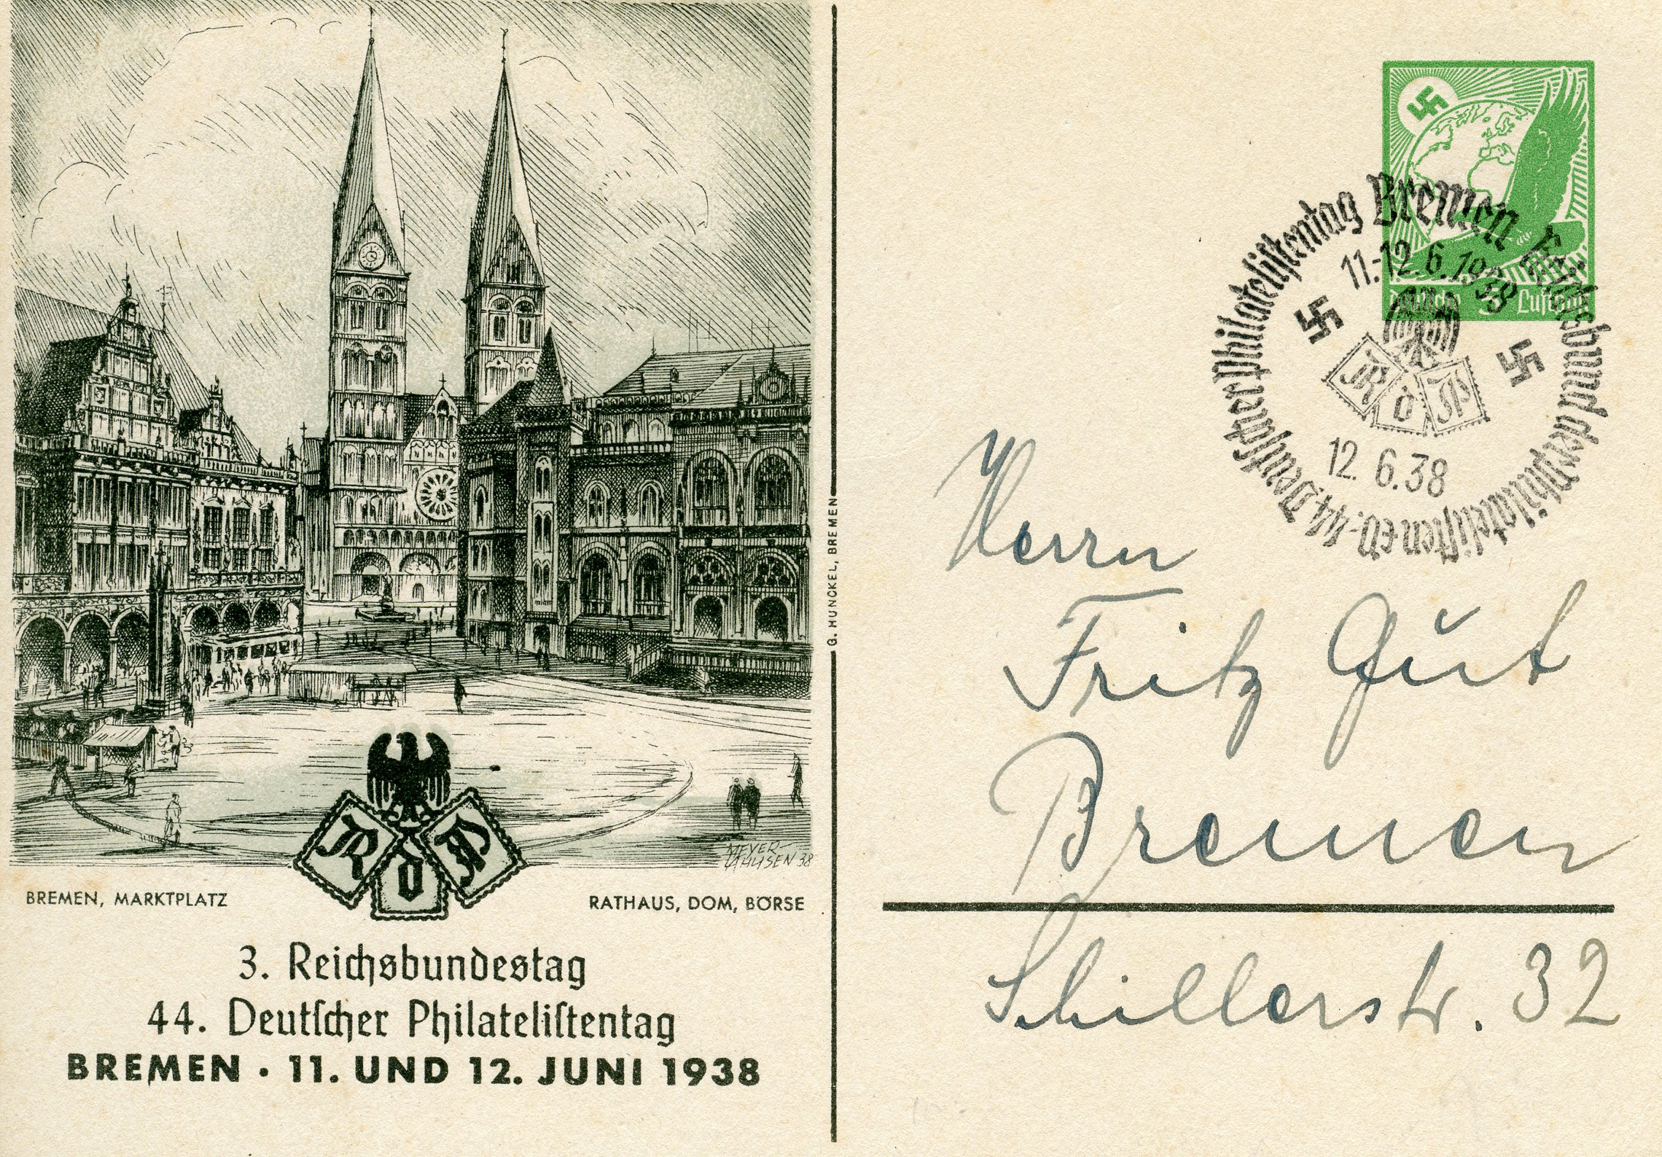 MEYER
R d P
BREMEN, MARKTPLATZ
RATHAUS, DOM, BÖRSE
3. Reichsbundestag
44. Deutscher Philatelistentag
BREMEN · 11. UND 12. JUNI 1938
G. HUNCKEL, BREMEN
Deutsche 5 Luftpost
44. Deutscher Philatelistentag Bremen Reichsbund der Philatelisten e.V.
11.-12.6.1938
R d P
12.6.38
Herrn
Fritz Gut
Bremen
Schillerstr. 32